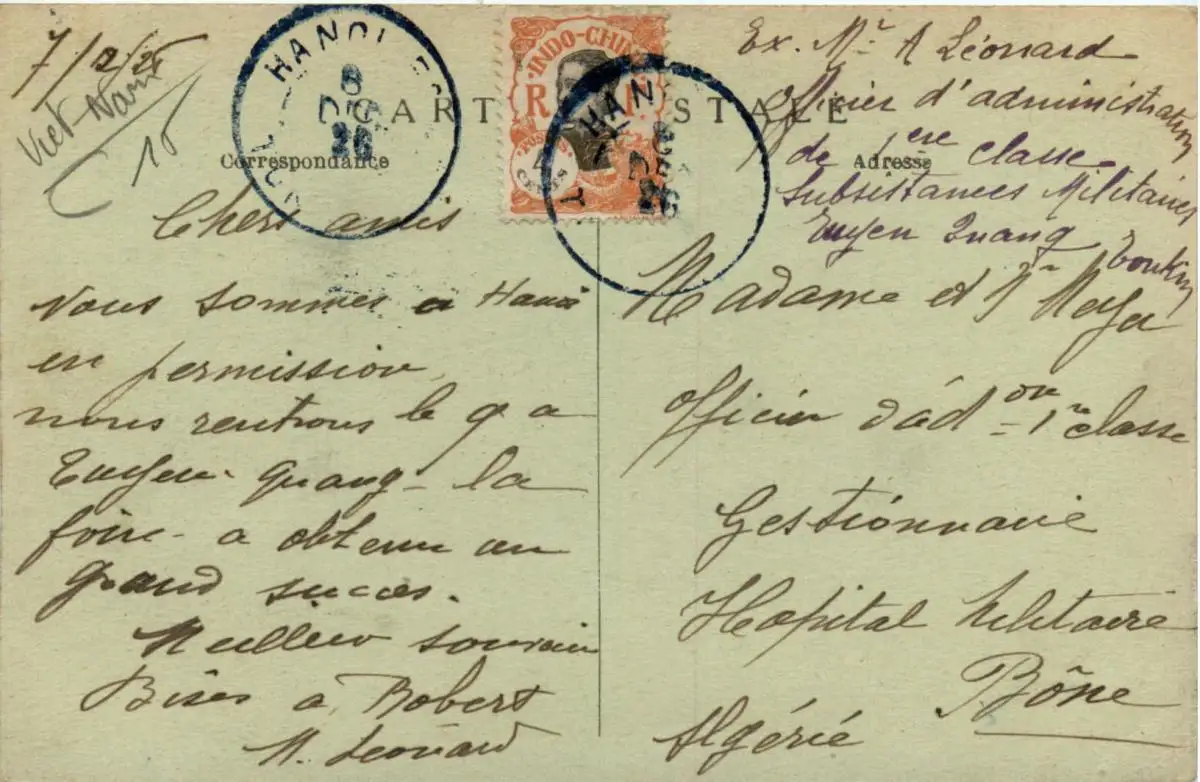 7/12/26
Viet-Nam
15
HANOI
8
DEC
26
INDO-CHINE
R F
POSTES
4
CENTS
HAN
DEC
26
CARTE POSTALE
Correspondance
Adresse
Ex. Mr A Léonard
Officier d'administration
de 1ere classe
Subsistances Militaires
Tuyen Quang Tonkin
Chers amis
Nous sommes a Hanoi
en permission,
nous rentrons le 9 a
Tuyen-Quang- la
foire- a obtenu un
grand succes.
Meilleur souvenir
Bises à Robert
M. Léonard
Madame et Mr
Officier d'ad on 1re classe
Gestionnaire
Hopital Militaire
Bône
Algérie